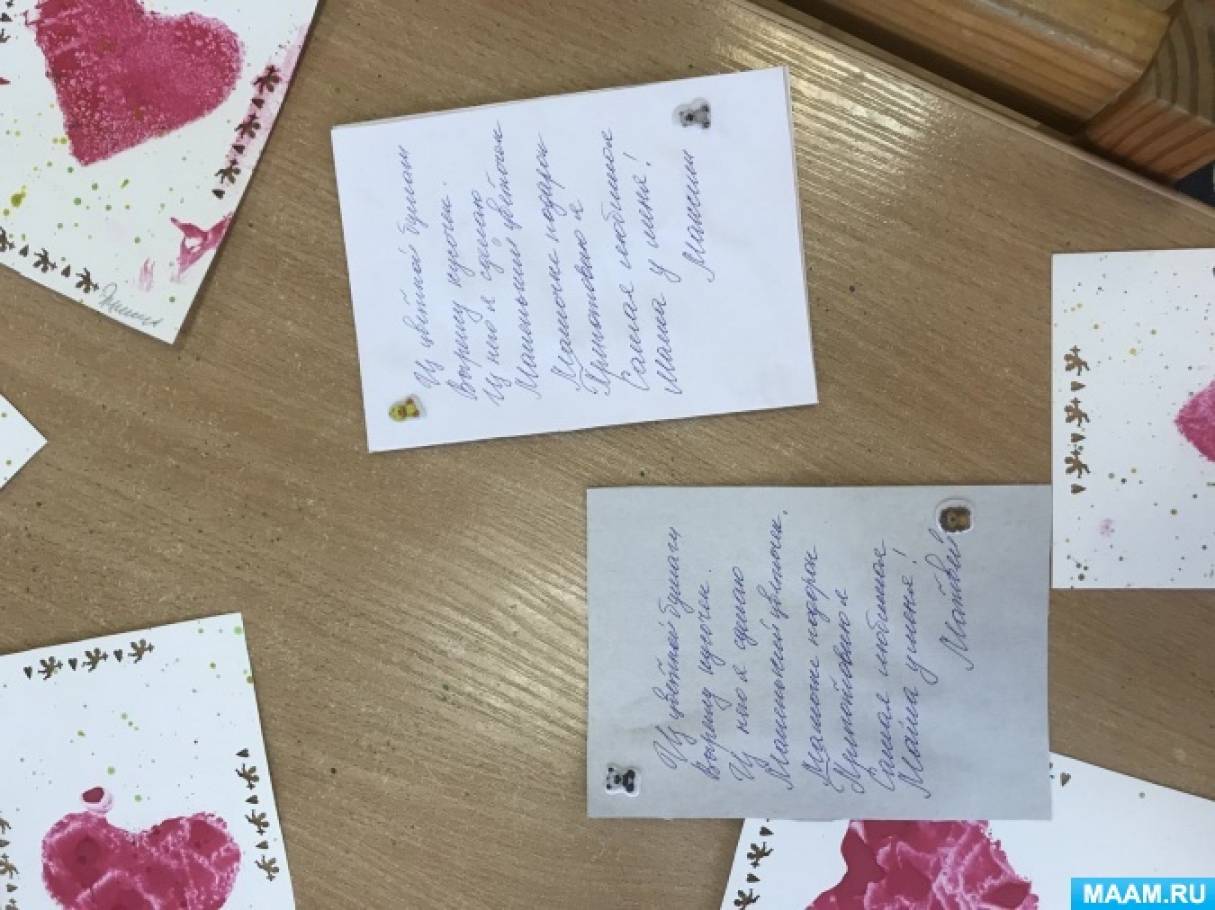 Из цветной бумаги
Вырежу кусочек.
Из него я сделаю
Маленький цветочек
Мамочке подарок
Приготовлю я
Самая любимая
Мама у меня!
Максим
Из цветной бумаги
Вырежу кусочек.
Из него я сделаю
Маленький цветочек.
Мамочке подарок
Приготовлю я
Самая любимая
Мама у меня!
Матвей
MAAM.RU